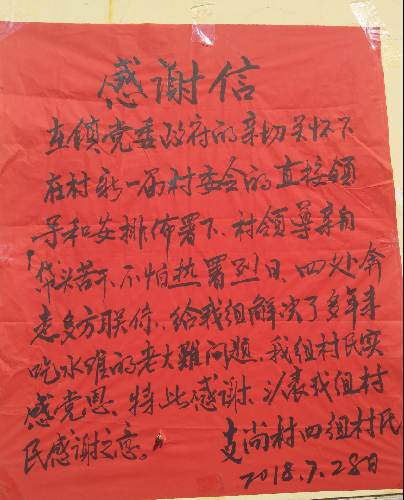 感谢信
在镇党委政府的亲切关怀下
在村新一届村委会的直接领
导和安排佈署下、村领导亲自
带头苦干、不怕热署烈日、四处奔
走多方联係、给我组解决了多年来
吃水难的老大難问题、我组村民实
感党恩、特此感谢、以表我组村
民感谢之意。
支尚村四组村民
2018.7.28日